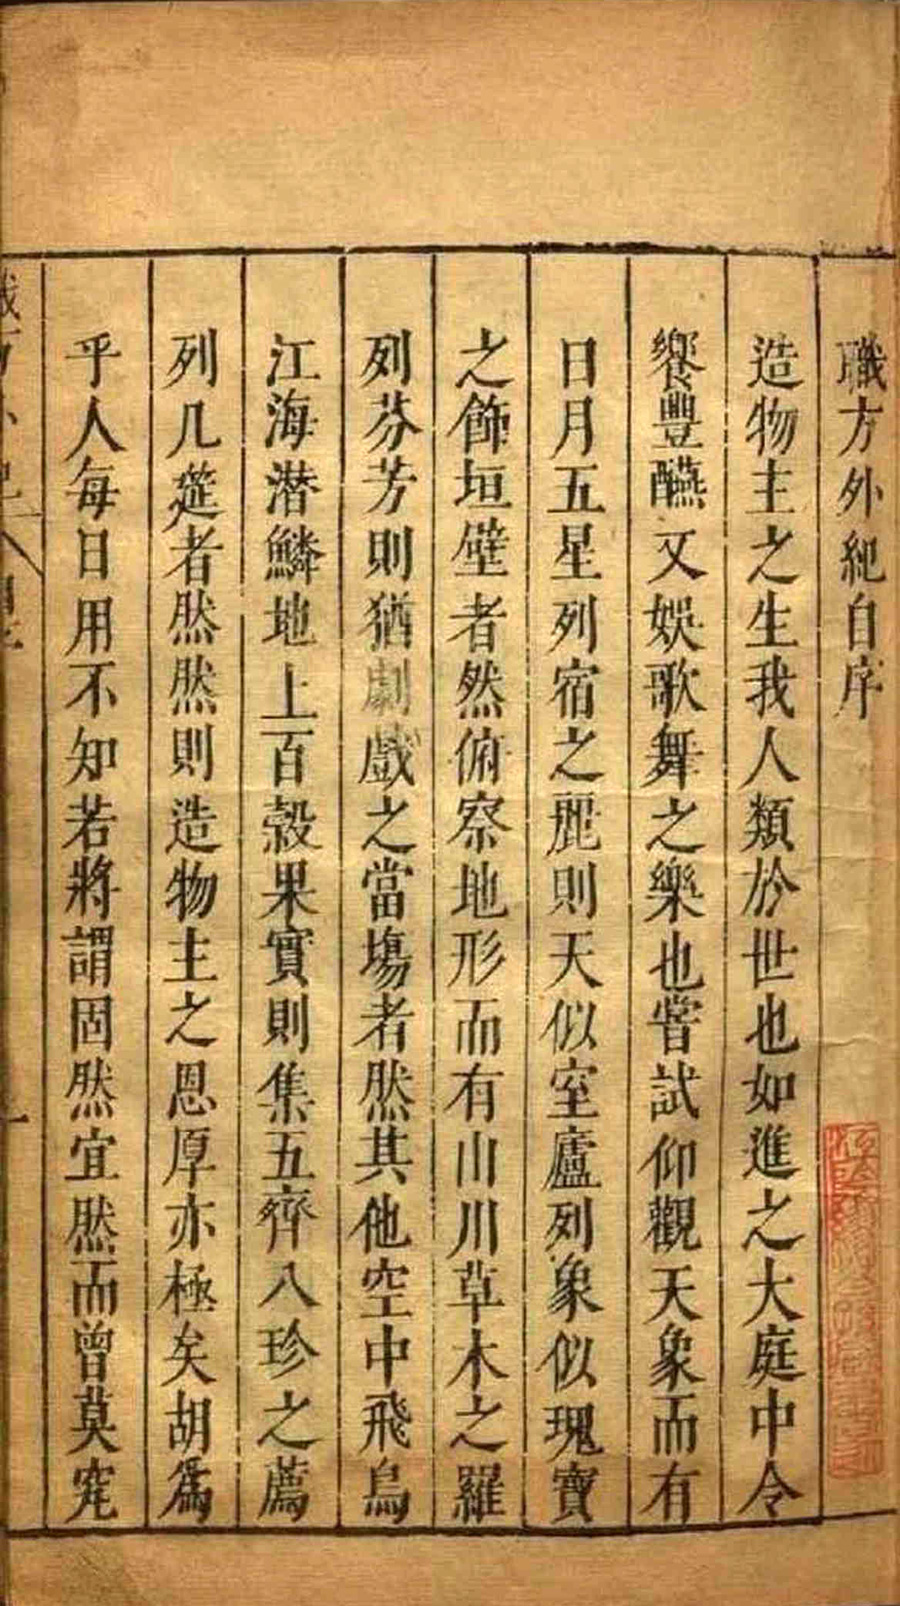 職方外紀自序
造物主之生我人類於世也如進之大庭中令
饗豐醼又娛歌舞之樂也嘗試仰觀天象而有
日月五星列宿之麗則天似室廬列象似瑰寶
之飾垣壁者然俯察地形而有山川草木之羅
列芬芳則猶劇戲之當塲者然其他空中飛鳥
江海潜鱗地上百穀果實則集五齊八珍之薦
列几筵者然然則造物主之恩厚亦極矣胡爲
乎人每日用不知若將謂固然宜然而曾莫究